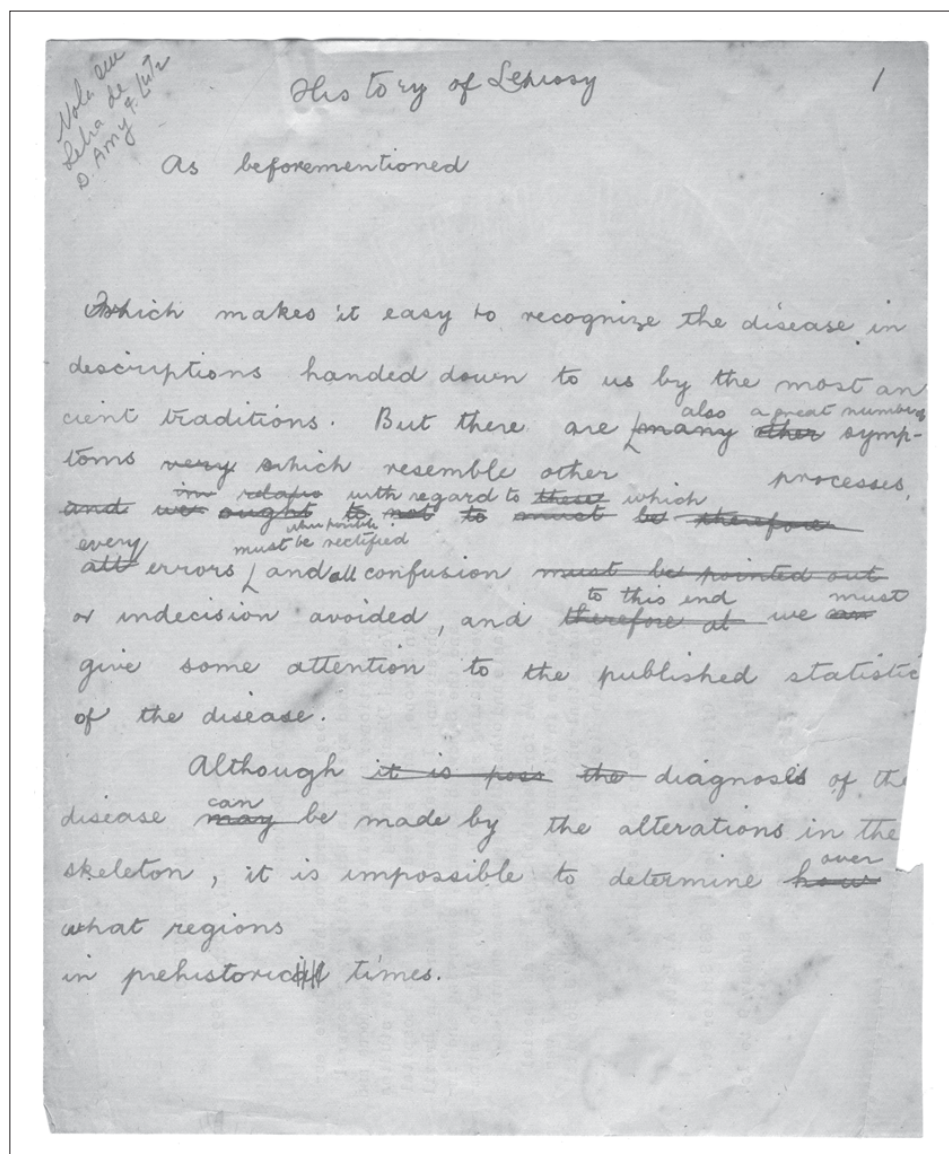 Nota em
Letra de
D. Amy F. Lutz
History of Leprosy
1
As beforementioned
Which makes it easy to recognize the disease in
descriptions handed down to us by the most an
cient traditions. But there are
also a great number of
many other symp-
toms very which resemble other processes,
in relatio with regard to these which
and we ought to not to must be therefore
every
when possible
must be rectified
all errors and all confusion must be pointed out
to this end must
or indecision avoided, and therefore at we
give some attention to the published statistic
of the disease.
Although it is poss the diagnosis of the
can
disease may be made by the alterations in the
over
skeleton, it is impossible to determine how
what regions
in prehistoric times.